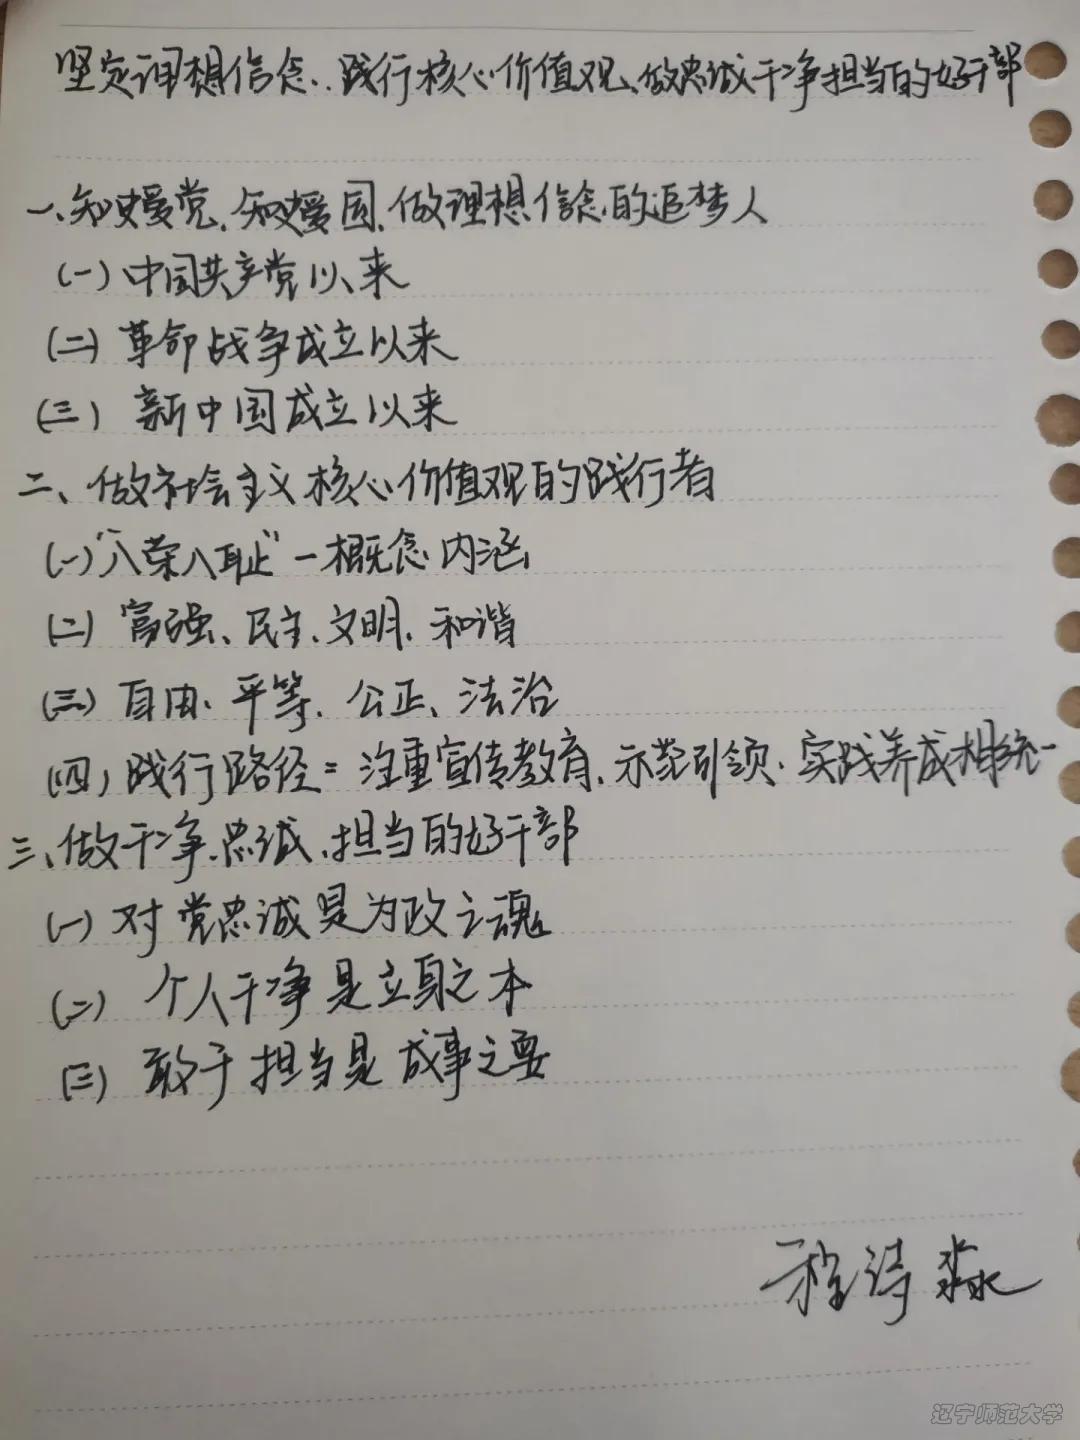 坚定理想信念、践行核心价值观、做忠诚干净担当的好干部
一、知史爱党、知史爱国、做理想信念的追梦人
(一) 中国共产党以来
(二) 革命战争成立以来
(三) 新中国成立以来
二、做社会主义核心价值观的践行者
(一)“八荣八耻”一概念内涵
(二) 富强、民主、文明、和谐
(三) 自由、平等、公正、法治
(四) 践行路径=注重宣传教育、示范引领、实践养成相统一
三、做干净、忠诚、担当的好干部
(一) 对党忠诚是为政之魂
(二) 个人干净是立身之本
(三) 敢于担当是成事之要
程诗淼
辽宁师范大学